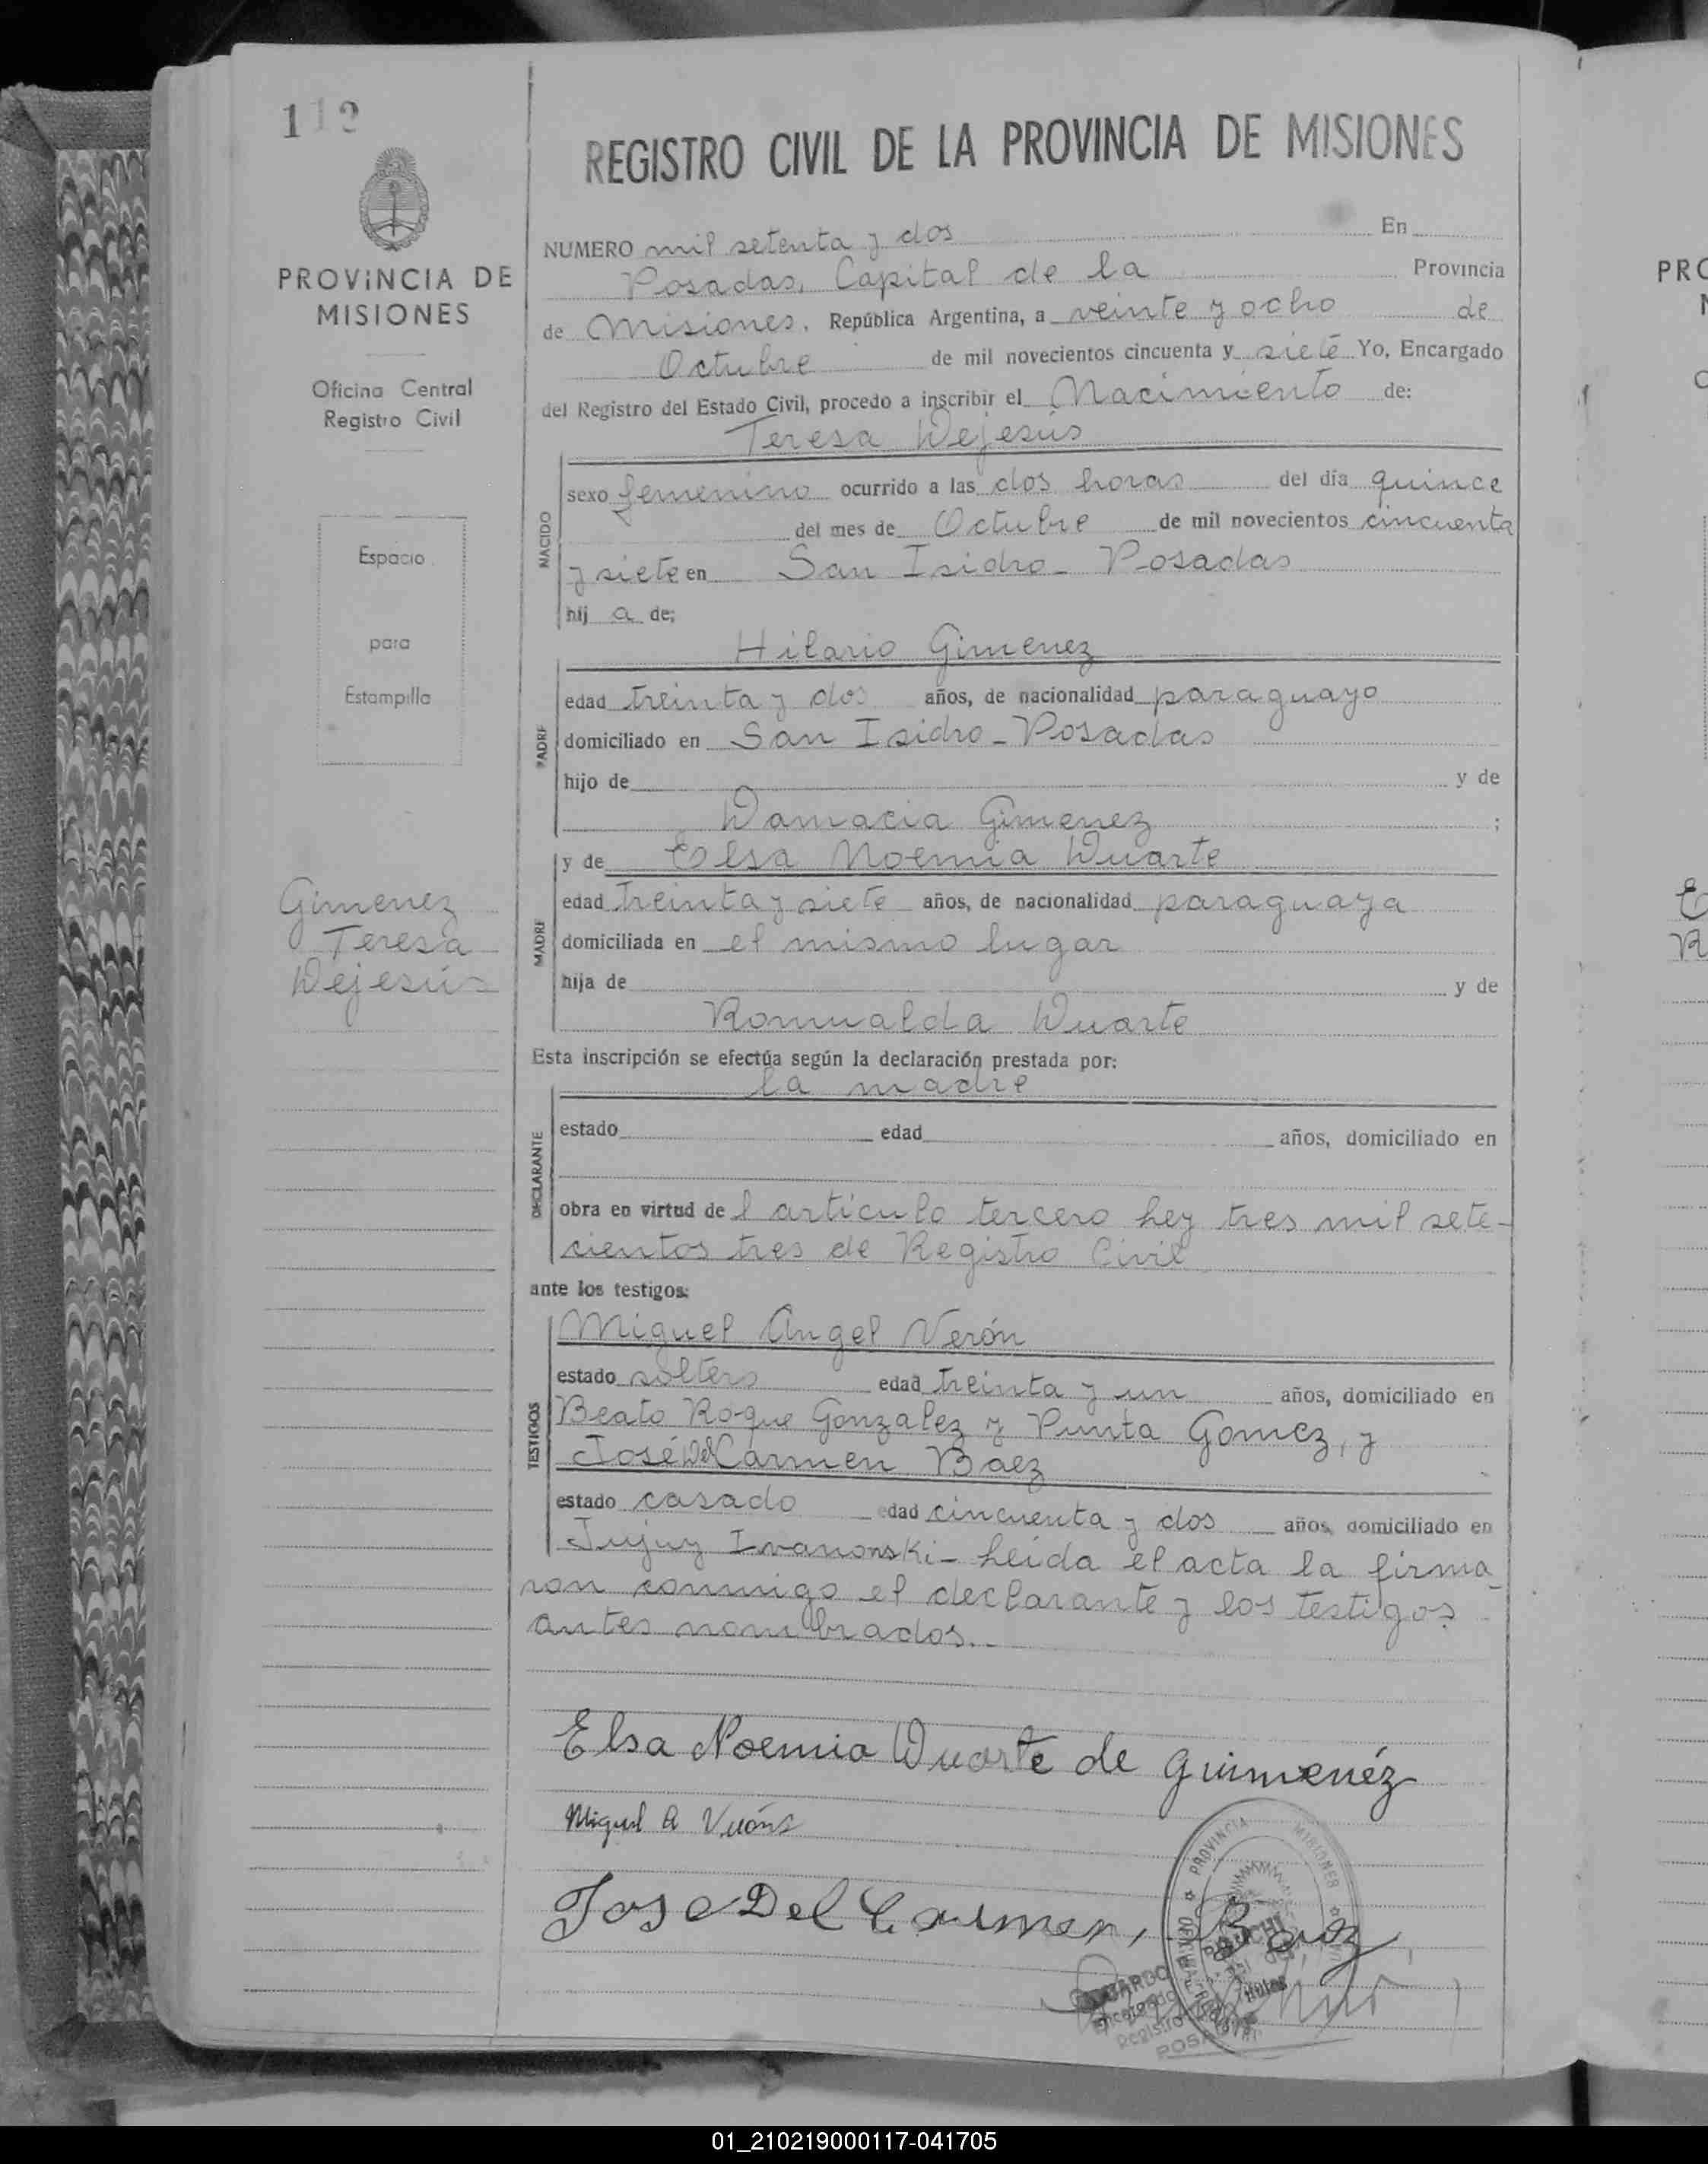 112
REGISTRO CIVIL DE LA PROVINCIA DE MISIONES
PROVINCIA DE
MISIONES
Oficina Central
Registro Civil
Espacio
para
Estampilla
Gimenez
Teresa
Dejesús
NUMERO mil setenta y dos En
Posadas, Capital de la Provincia
de Misiones, República Argentina, a veinte y ocho de
Octubre de mil novecientos cincuenta y siete Yo, Encargado
del Registro del Estado Civil, procedo a inscribir el Nacimiento de:
Teresa Dejesús
NACIDO
sexo femenino ocurrido a las dos horas del día quince
del mes de Octubre de mil novecientos cincuenta
y siete en San Isidro - Posadas
hij a de;
Hilario Gimenez
PADRE
edad treinta y dos años, de nacionalidad paraguayo
domiciliado en San Isidro - Posadas
hijo de y de
Damacia Gimenez ;
y de Elsa Noemia Duarte
MADRE
edad treinta y siete años, de nacionalidad paraguaya
domiciliada en el mismo lugar
hija de y de
Romualda Duarte
Esta inscripción se efectúa según la declaración prestada por:
la madre
DECLARANTE
estado edad años, domiciliado en
obra en virtud de l artículo tercero Ley tres mil sete-
cientos tres de Registro Civil
ante los testigos:
TESTIGOS
Miguel Angel Verón
estado soltero edad treinta y un años, domiciliado en
Beato Roque Gonzalez y Punta Gomez, y
José Del Carmen Baez
estado casado edad cincuenta y dos años, domiciliado en
Jujuy Ivanonski - Leída el acta la firma-
ron conmigo el declarante y los testigos
antes nombrados.-
Elsa Noemia Duarte de Guimenéz
Miguel A Verón
Jose Del Carmen, Baez
PROVINCIA MISIONES
Encargado
Registro
POSADAS
PRO
01_210219000117-041705